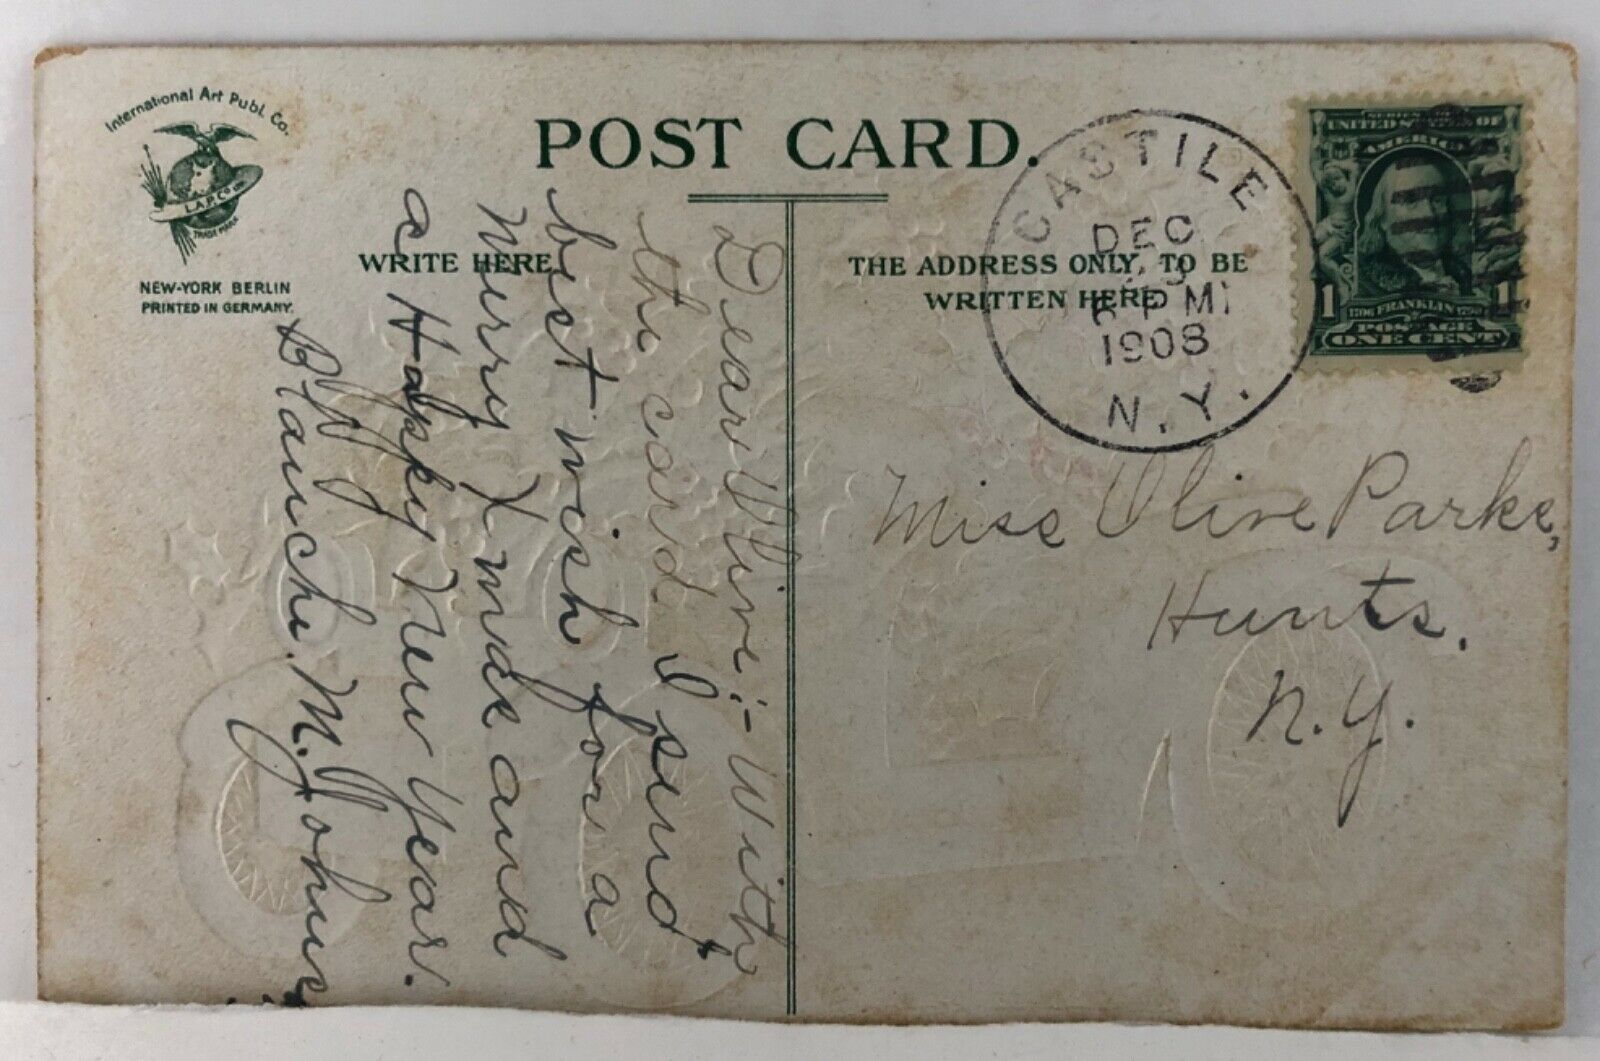 International Art Publ. Co.
I.A.P. Co.
TRADE MARK
NEW-YORK BERLIN
PRINTED IN GERMANY.
POST CARD.
WRITE HERE.
THE ADDRESS ONLY, TO BE
WRITTEN HERE.
CASTILE
DEC
PM
1908
N.Y.
SERIES
UNITED STATES OF
AMERICA
1 FRANKLIN 1
1706 1790
POSTAGE
ONE CENT
Miss Olive Parks,
Hunts.
N.Y.
Dear Olive:- With
the card I send
best wish for a
Merry Xmas and
a Happy New Year.
Blanche. M. Johns